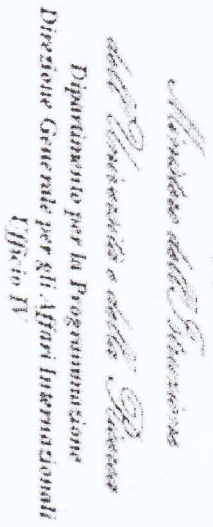 Ministero dell'Istruzione
dell'Università e della Ricerca
Dipartimento per la Programmazione
Direzione Generale per gli Affari Internazionali
Ufficio IV